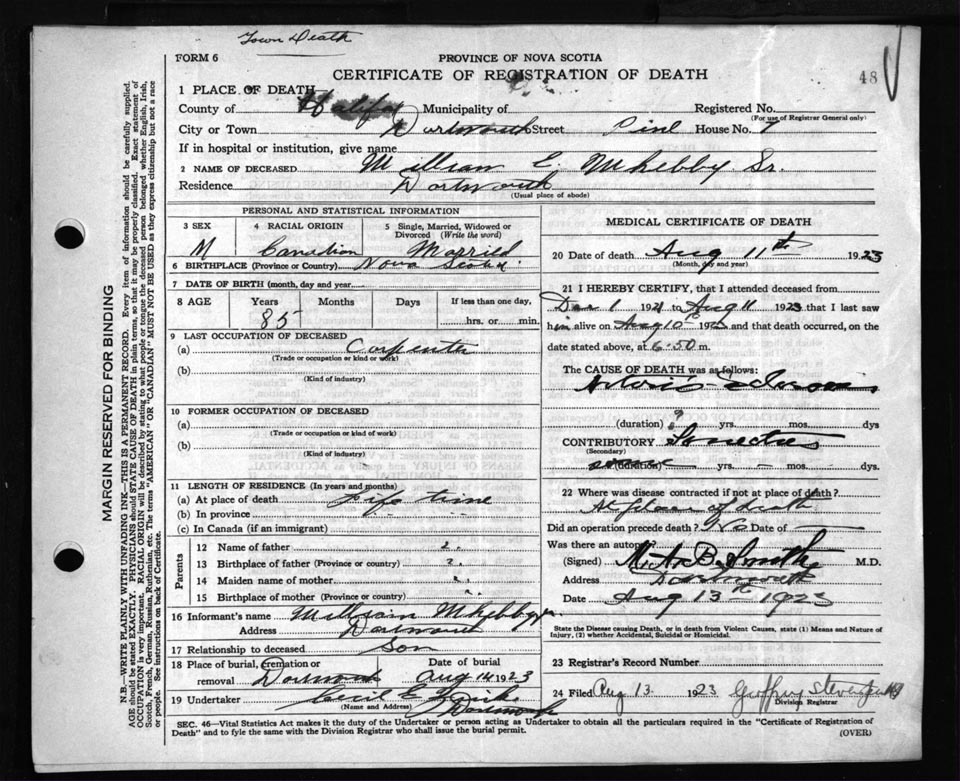 Town Death
FORM 6
PROVINCE OF NOVA SCOTIA
CERTIFICATE OF REGISTRATION OF DEATH
48
1 PLACE OF DEATH
County of Halifax Municipality of Registered No.
(For use of Registrar General only)
City or Town Dartmouth Street Pine House No. 7
If in hospital or institution, give name
2 NAME OF DECEASED William E. Sr.
Residence Dartmouth
(Usual place of abode)
PERSONAL AND STATISTICAL INFORMATION
3 SEX 4 RACIAL ORIGIN 5 Single, Married, Widowed or Divorced (Write the word)
M Canadian Married
6 BIRTHPLACE (Province or Country) Nova Scotia
7 DATE OF BIRTH (month, day and year)
8 AGE Years Months Days If less than one day,
85 hrs. or min.
9 LAST OCCUPATION OF DECEASED
(a) Carpenter
(Trade or occupation or kind of work)
(b)
(Kind of industry)
10 FORMER OCCUPATION OF DECEASED
(a)
(Trade or occupation or kind of work)
(b)
(Kind of industry)
11 LENGTH OF RESIDENCE (In years and months)
(a) At place of death Life time
(b) In province " "
(c) In Canada (if an immigrant)
Parents
12 Name of father ?
13 Birthplace of father (Province or country) ?
14 Maiden name of mother ?
15 Birthplace of mother (Province or country) ?
16 Informant's name William
Address Dartmouth
17 Relationship to deceased Son
18 Place of burial, cremation or removal Dartmouth Date of burial Aug 14 1923
19 Undertaker Cecil E. Dartmouth
(Name and Address)
MEDICAL CERTIFICATE OF DEATH
20 Date of death Aug 11th 1923
(Month, day and year)
21 I HEREBY CERTIFY, that I attended deceased from
1 1921 to Aug 11 1923 that I last saw
him alive on Aug 10th 1923 and that death occurred, on the
date stated above, at 6.50 m.
The CAUSE OF DEATH was as follows:
Arterio-Sclerosis
(duration) ? yrs. mos. dys
CONTRIBUTORY
(Secondary)
(duration) yrs. mos. dys.
22 Where was disease contracted if not at place of death?
At place of death
Did an operation precede death? No Date of
Was there an autopsy
(Signed) M.A.B. Smith M.D.
Address Dartmouth
Date Aug 13th 1923
State the Disease causing Death, or in death from Violent Causes, state (1) Means and Nature of
Injury, (2) whether Accidental, Suicidal or Homicidal.
23 Registrar's Record Number
24 Filed Aug 13 1923 Geoffrey
Division Registrar
SEC. 46—Vital Statistics Act makes it the duty of the Undertaker or person acting as Undertaker to obtain all the particulars required in the "Certificate of Registration of
Death" and to fyle the same with the Division Registrar who shall issue the burial permit.
(OVER)
MARGIN RESERVED FOR BINDING
N.B.—WRITE PLAINLY WITH UNFADING INK—THIS IS A PERMANENT RECORD. Every item of information should be carefully supplied.
AGE should be stated EXACTLY. PHYSICIANS should STATE CAUSE OF DEATH in plain terms, so that it may be properly classified. Exact statement of
OCCUPATION is very important. RACIAL ORIGIN will be described by stating to what people or tongue the deceased person belonged whether English, Irish,
Scotch, French, German, Russian, Ruthenian, etc. The terms "AMERICAN" OR "CANADIAN" MUST NOT BE USED as they express citizenship but not a race
or people. See instructions on back of Certificate.